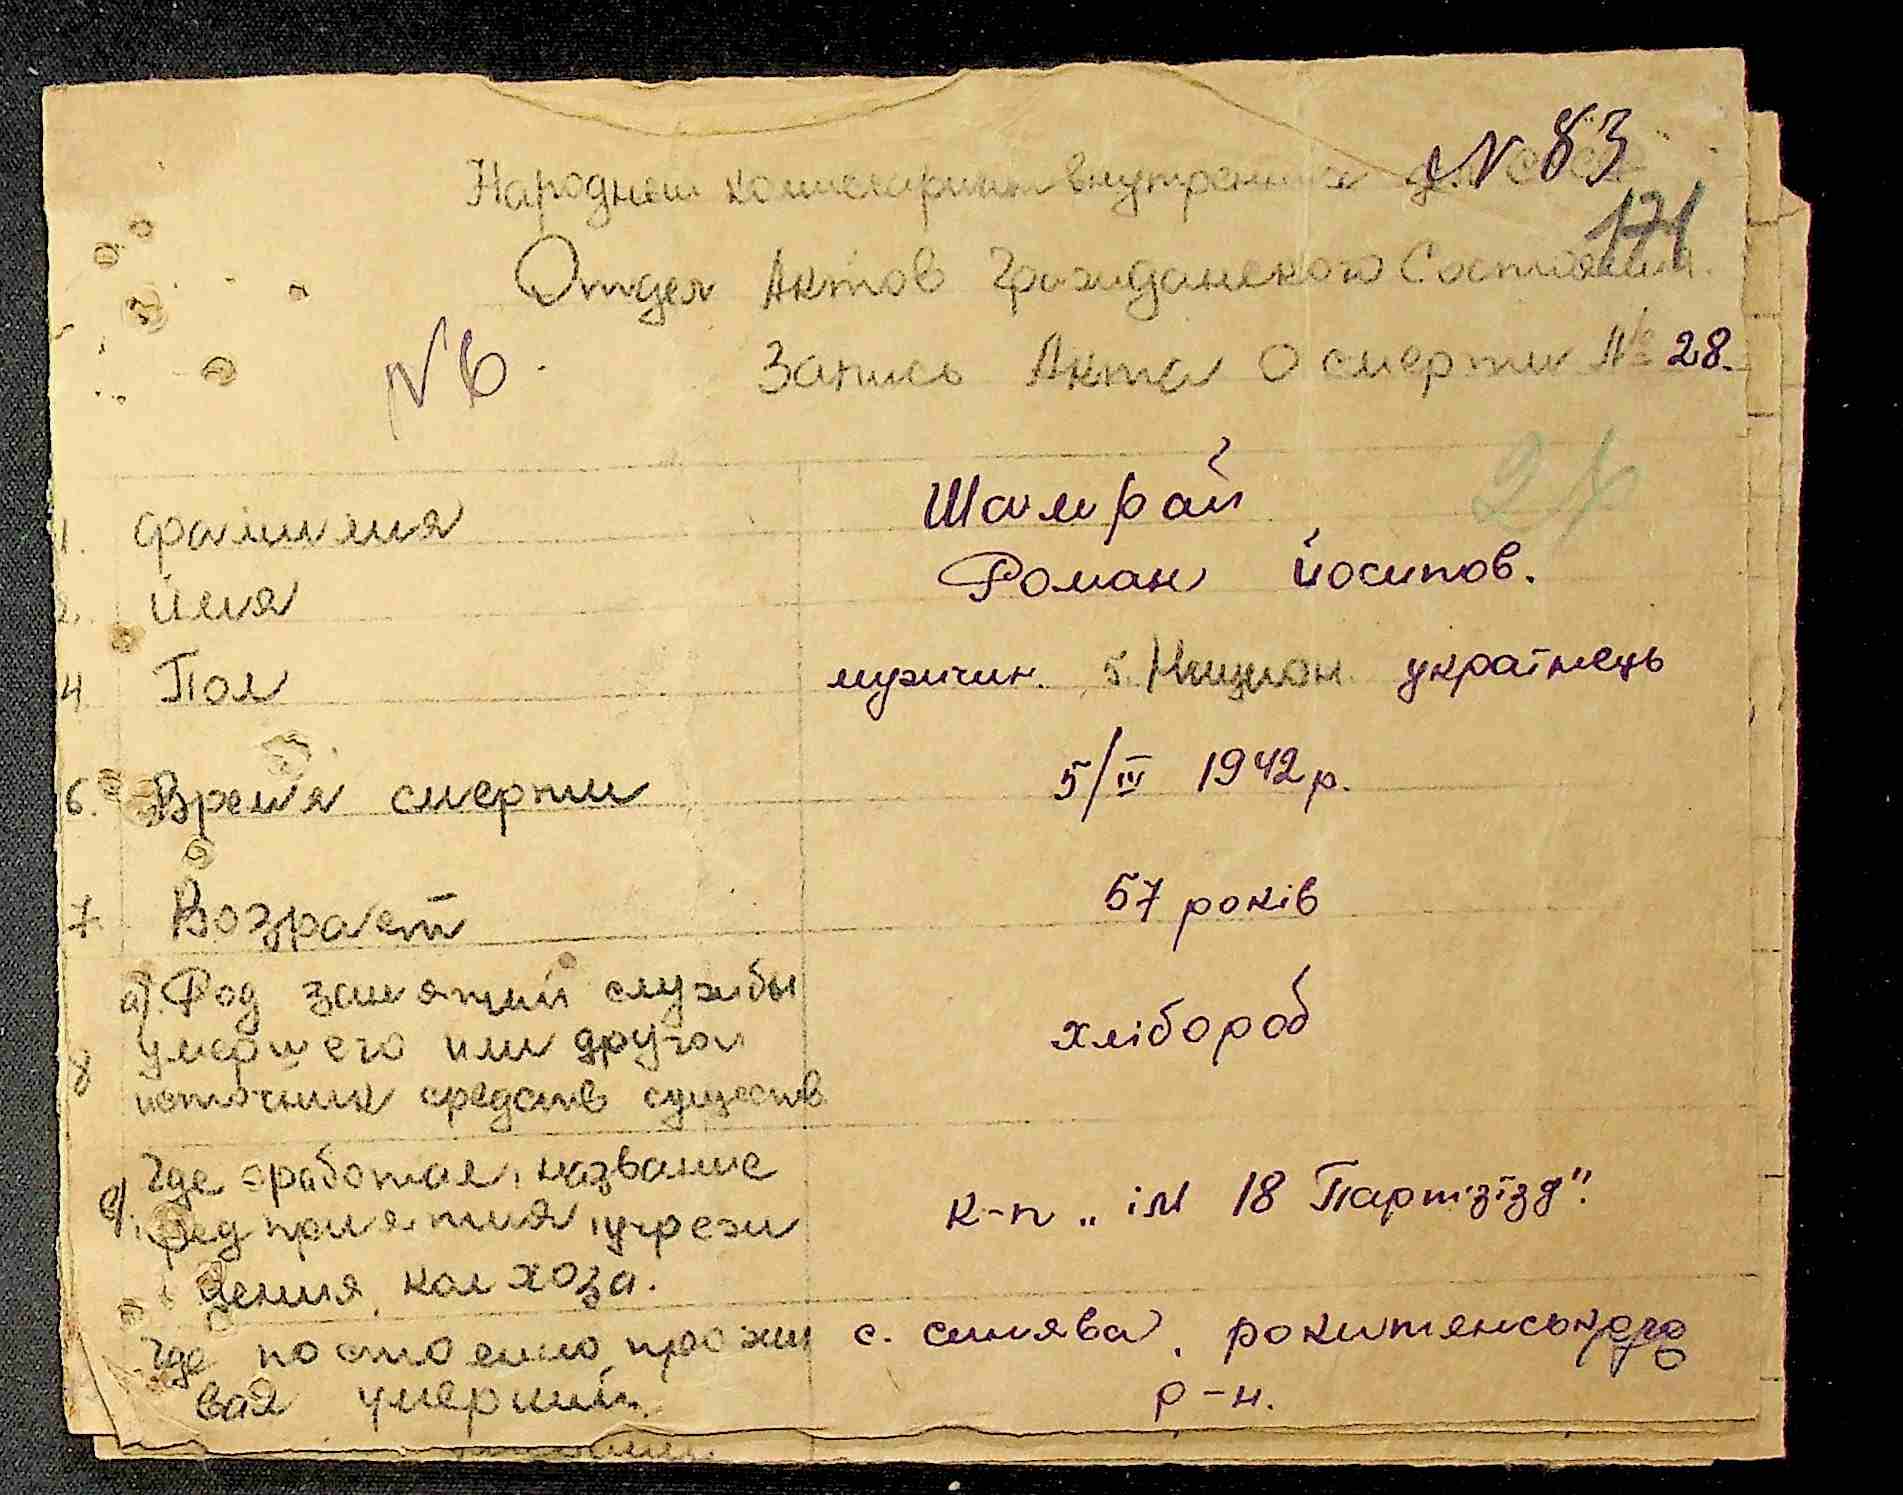 № 83
Народный комиссариат внутренних дел СССР
171
Отдел Актов Гражданского Состояния.
№ 6.
Запись Акта О смерти № 28.
1. фамилия Шамрай
2. имя Роман йосипов.
4 Пол мужчин. 5. Национ. українець
6. Время смерти 5/III 1942 р.
7. Возраст 57 років
а). Род занятий службы
8 умершего или другой хлібороб
источник средств существ
Где работал, название
в/. предприятия, учреж к-п „ім 18 Партз'їзд".
дения, колхоза.
Где постоянно прожи с. синява, рокитянського
вал умерший р-н.